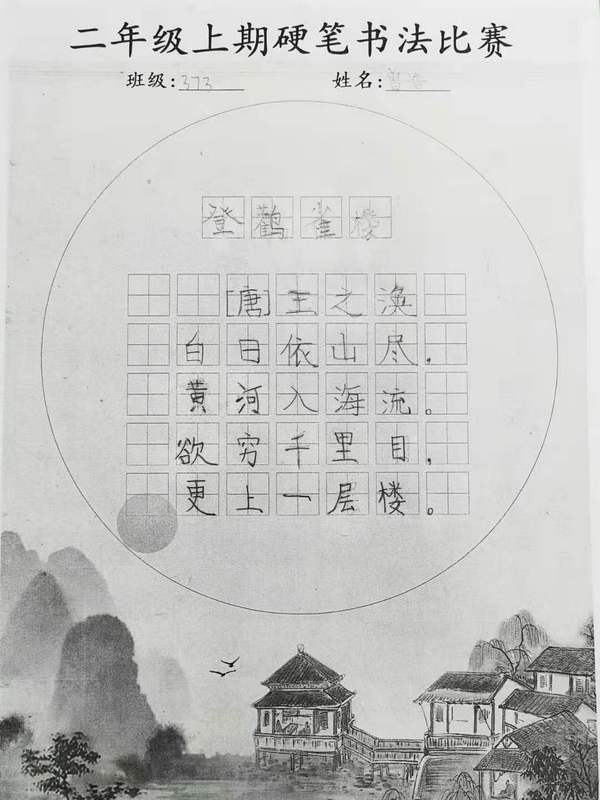 二年级上期硬笔书法比赛
班级:373 姓名:
登鹳雀楼
[唐]王之涣
白日依山尽，
黄河入海流。
欲穷千里目，
更上一层楼。